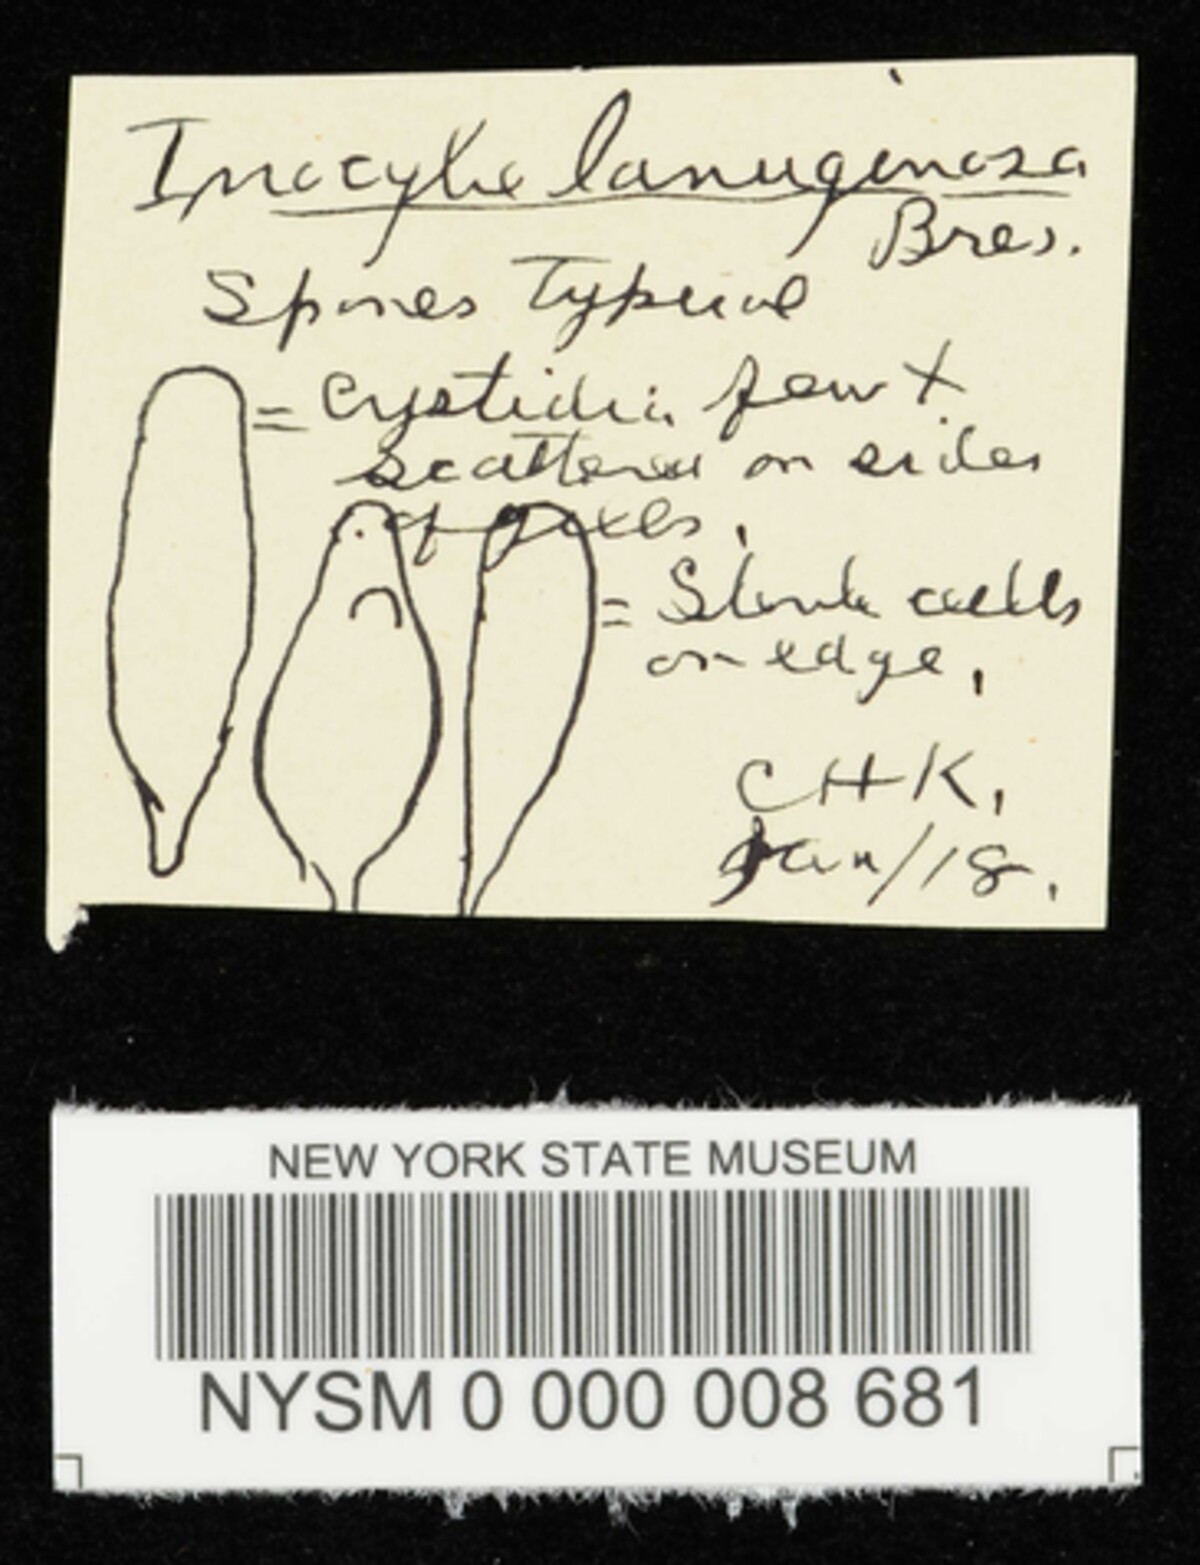 Inocybe lanuginosa
Bres.
Spores Typical
= Cystidia few &
scattered on sides
of gills.
= Sterile cells
on edge.
CHK.
Jan/18.
NEW YORK STATE MUSEUM
NYSM 0 000 008 681